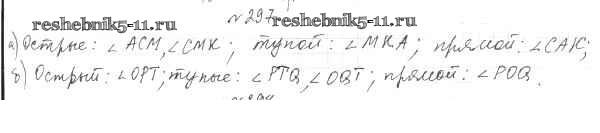 № 297
reshebnik5-11.ru reshebnik5-11.ru
а) Острые: ∠ACM, ∠CMK; тупой: ∠MKA; прямой: ∠CAK;
б) Острый: ∠OPT; тупые: ∠PTQ, ∠OQT; прямой: ∠POQ.